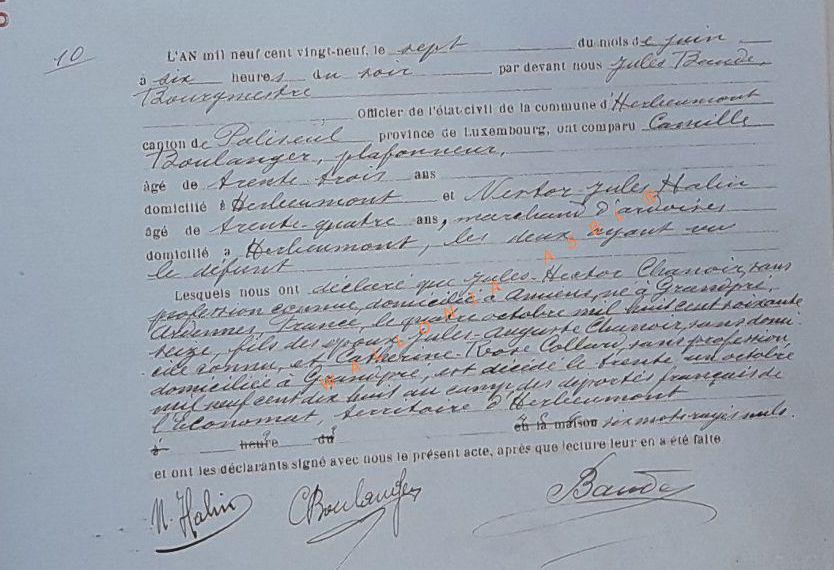 10
L'AN mil neuf cent vingt-neuf, le sept du mois de juin
à six heures du soir par devant nous Jules Baude,
Bourgmestre
Officier de l'état civil de la commune d'Herbeumont
canton de Paliseul province de Luxembourg, ont comparu Camille
Boulanger, plafonneur,
âgé de trente trois ans
domicilié à Herbeumont et Nestor-Jules Halin
âgé de trente-quatre ans, marchand d'ardoises
domicilié à Herbeumont, les deux ayant vu
le défunt
Lesquels nous ont déclaré que Jules-Hector Chanoir, sans
profession connue, domicilié à Amiens, né à Grandpré,
Ardennes, France, le quatre octobre mil huit cent soixante
seize, fils des époux Jules-Auguste Chanoir, sans domi-
cile connu, et Catherine-Rose Collard, sans profession,
domiciliée à Grandpré, est décédé le trente un octobre
mil neuf cent dix huit au camp des déportés français de
l'Economat, territoire d'Herbeumont
à heure du en la maison six mots rayés nuls.
et ont les déclarants signé avec nous le présent acte, après que lecture leur en a été faite
N. Halin CBoulanger Baude
WALLONIA ASBL